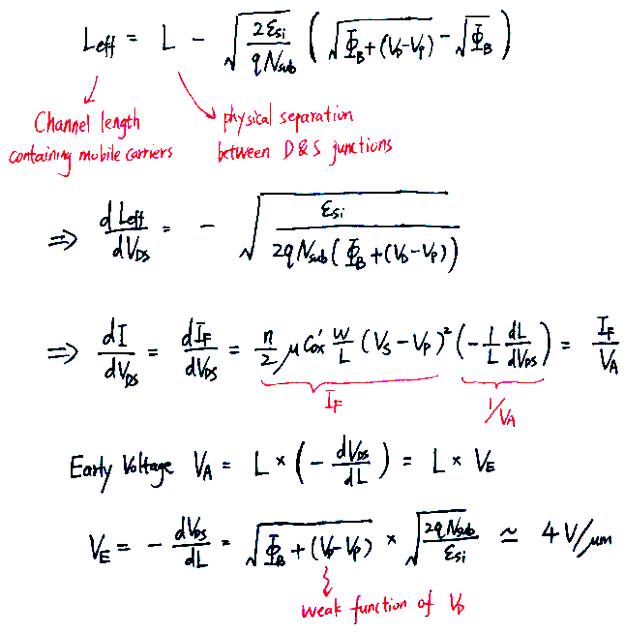 L_eff = L − √(2ε_si / qN_sub) ( √(Φ_B + (V_D − V_P)) − √Φ_B )
Channel length
containing mobile carriers
physical separation
between D & S junctions
⇒ dL_eff/dV_DS = − √(ε_si / 2qN_sub(Φ_B + (V_D − V_P)))
⇒ dI/dV_DS = dI_F/dV_DS = n/2 μC'_ox W/L (V_S − V_P)² (−1/L dL/dV_DS) = I_F/V_A
I_F
1/V_A
Early Voltage V_A = L × (− dV_DS/dL) = L × V_E
V_E = − dV_DS/dL = √(Φ_B + (V_D − V_P)) × √(2qN_sub/ε_si) ≃ 4 V/μm
weak function of V_D